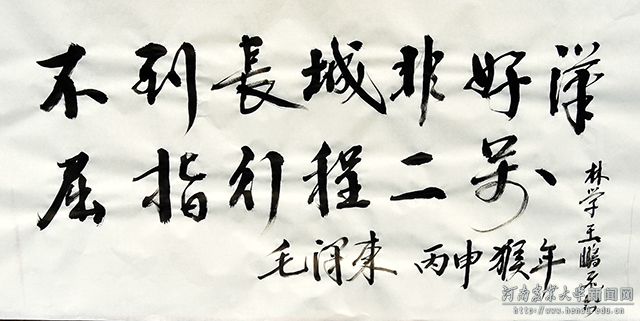 不到長城非好漢
屈指行程二萬
毛泽東 丙申猴年
林学王鹏
河南農業大學新闻网
http://www.henau.edu.cn